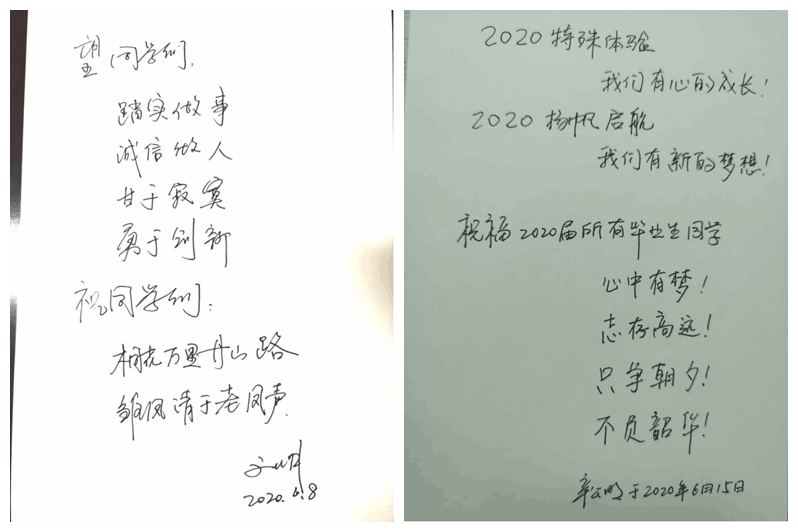 望同学们,
踏实做事
诚信做人
甘于寂寞
勇于创新
祝同学们:
桐花万里丹山路
雏凤清于老凤声.
2020.6.8
2020 特殊体验
我们有心的成长!
2020 扬帆启航
我们有新的梦想!
祝福2020届所有毕业生同学
心中有梦!
志存高远!
只争朝夕!
不负韶华!
于2020年6月15日